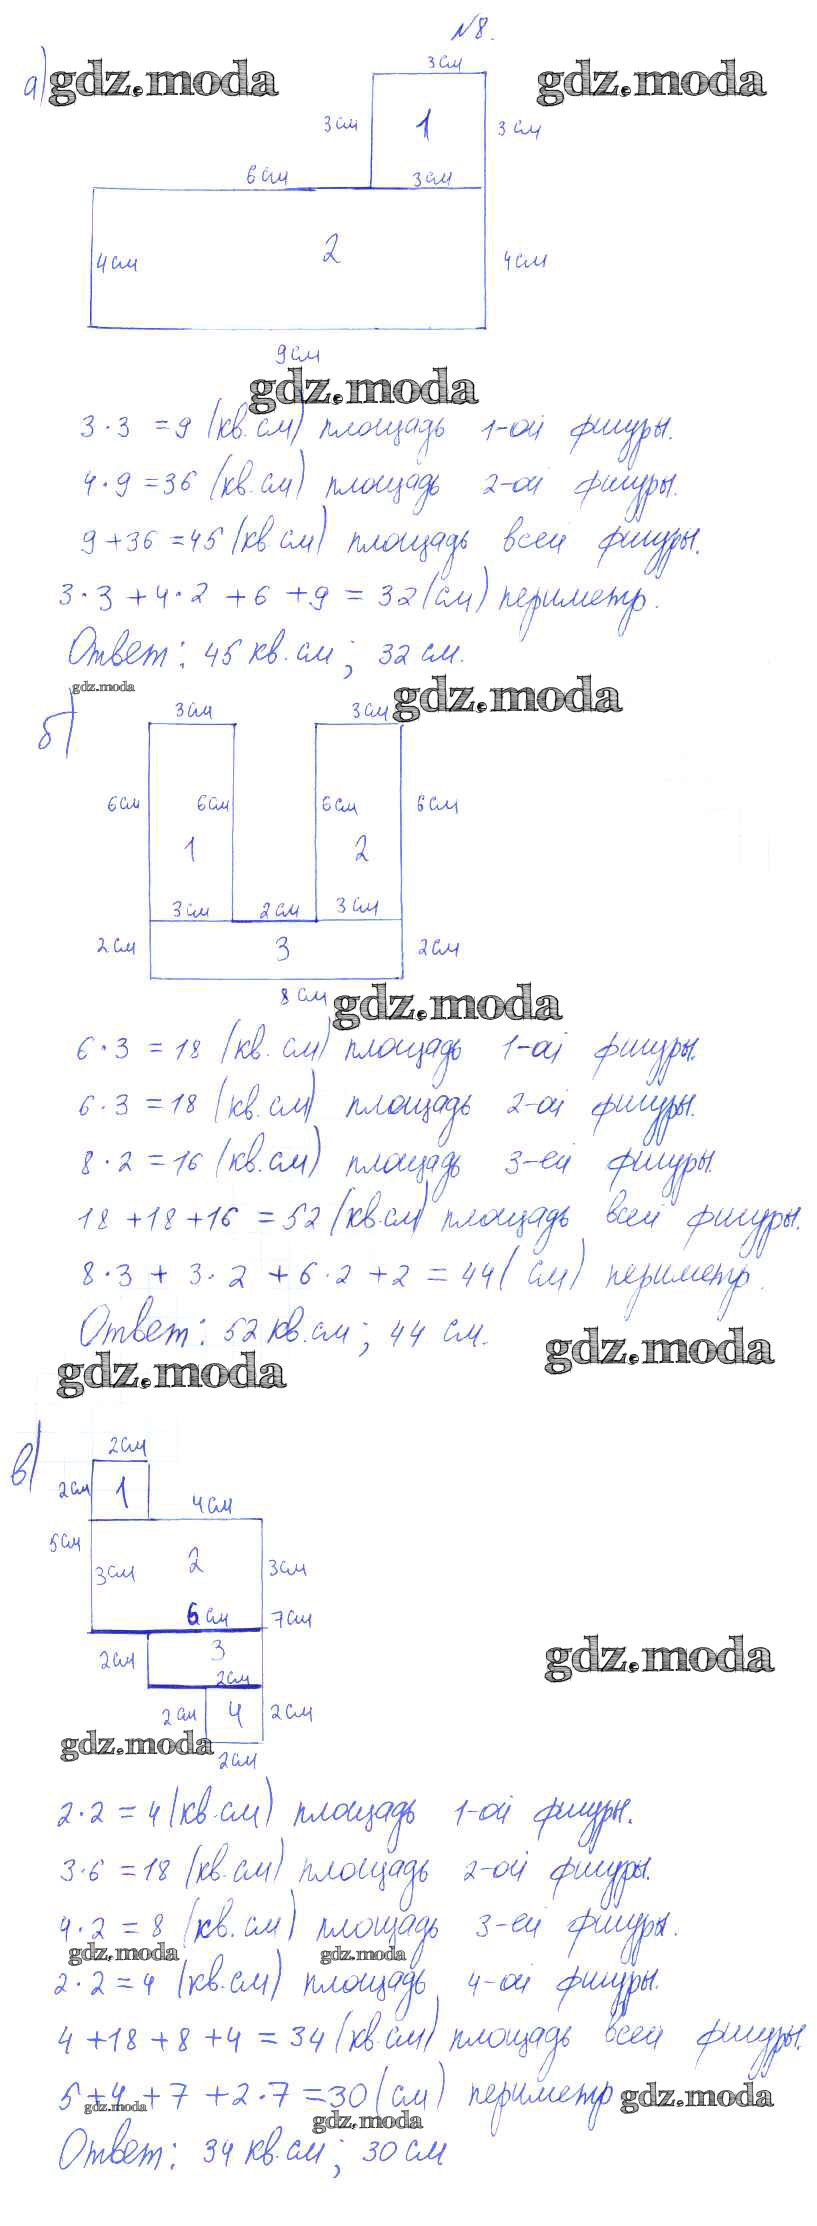 №8.
а) gdz.moda gdz.moda
3см
3см 1 3см
6см 3см
4см 2 4см
9см
gdz.moda
3·3 =9 (кв.см) площадь 1-ой фигуры.
4·9=36 (кв.см) площадь 2-ой фигуры.
9+36=45(кв.см) площадь всей фигуры.
3·3+4·2+6+9=32(см) периметр.
Ответ: 45 кв.см; 32 см.
gdz.moda gdz.moda
б) 3см 3см
6см 6см 6см 6см
1 2
3см 2см 3см
2см 3 2см
8 см gdz.moda
6·3=18 (кв.см) площадь 1-ой фигуры.
6·3=18 (кв.см) площадь 2-ой фигуры.
8·2=16 (кв.см) площадь 3-ей фигуры.
18+18+16=52(кв.см) площадь всей фигуры.
8·3+3·2+6·2+2=44(см) периметр.
Ответ: 52кв.см; 44 см.
gdz.moda gdz.moda
в) 2см
2см 1 4см
5см
3см 2 3см
6см 7см
2см 3
2см gdz.moda
2см 4 2см
gdz.moda 2см
2·2=4(кв.см) площадь 1-ой фигуры.
3·6=18 (кв.см) площадь 2-ой фигуры.
4·2=8 (кв.см) площадь 3-ей фигуры.
gdz.moda gdz.moda
2·2=4 (кв.см) площадь 4-ой фигуры.
4+18+8+4=34(кв.см) площадь всей фигуры.
5+4+7+2·7=30(см) периметр gdz.moda
gdz.moda gdz.moda
Ответ: 34 кв.см; 30 см